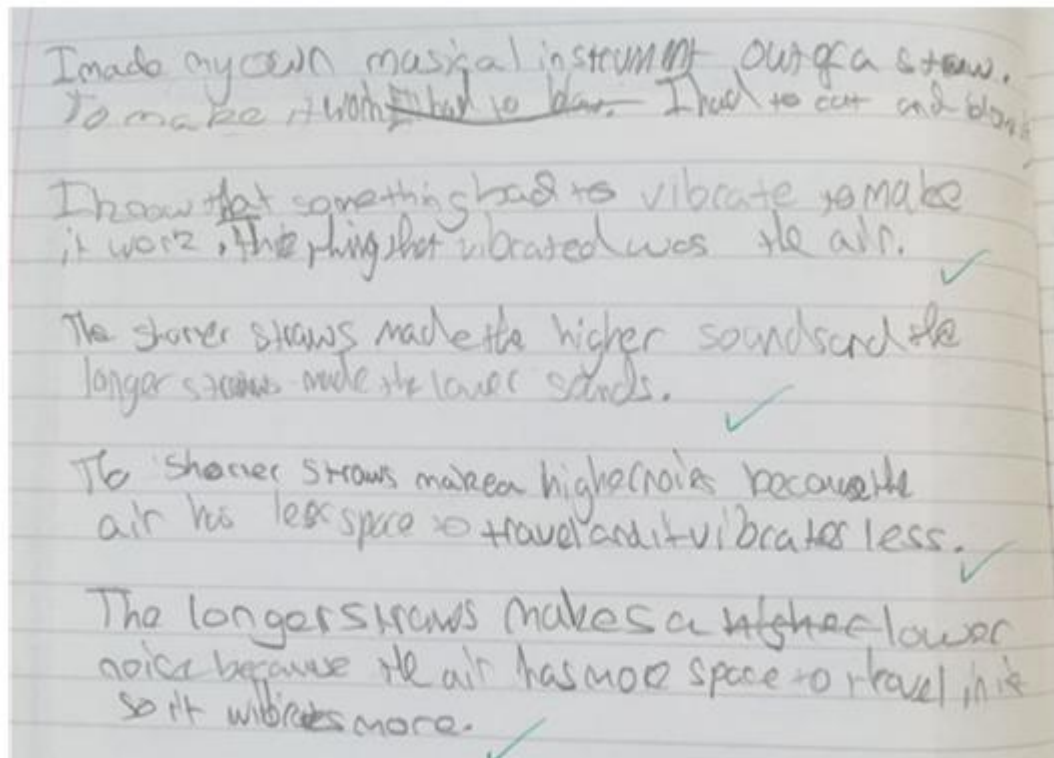 I made my own musical instrumnt out of a straw.
To make it work I had to blow. I had to cut and blow it
I know that something had to vibrate to make
it work, the thing that vibrated was the air.
The shorer straws made the higher sounds and the
longer straws made the lower sounds.
The shorer straws make a higher noies because the
air has less space to travel and it vibrates less.
The longer straws makes a higher lower
noice because the air has more space to travel in it
so it vibrates more.